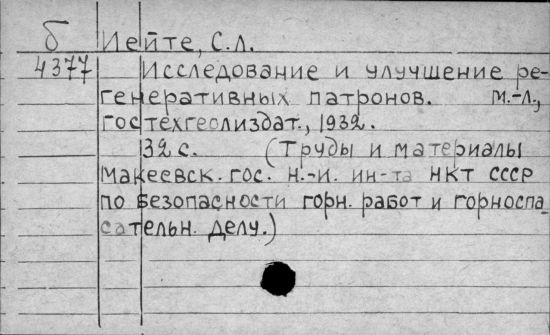 б Иейте, С.Л.
4377 Исследование и улучшение ре-
генеративных патронов. М.-Л.,
Гостехгеолиздат., 1932.
32 с. (Труды и материалы
Макеевск. гос. н.-и. ин-та НКТ СССР
по безопасности горн. работ и горноспа-
сательн. делу.)